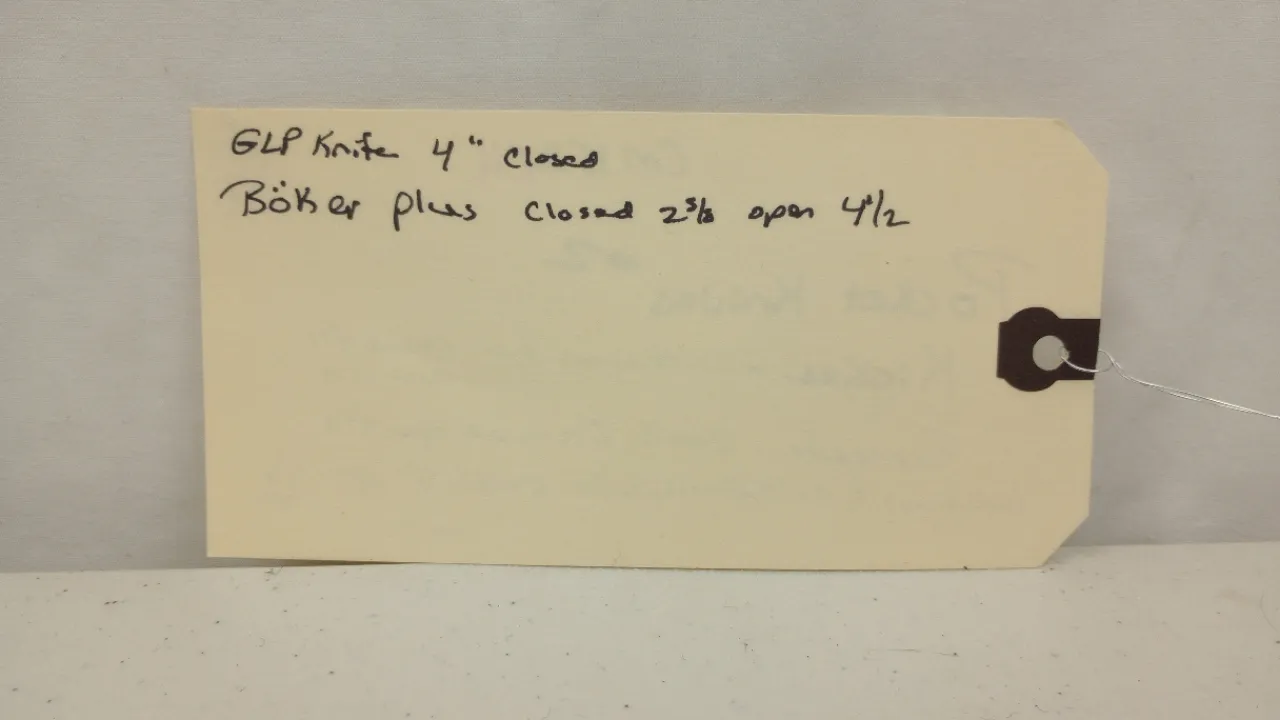 GLP Knife 4" closed
Böker plus closed 2 5/8 open 4 1/2
Pocket Knives